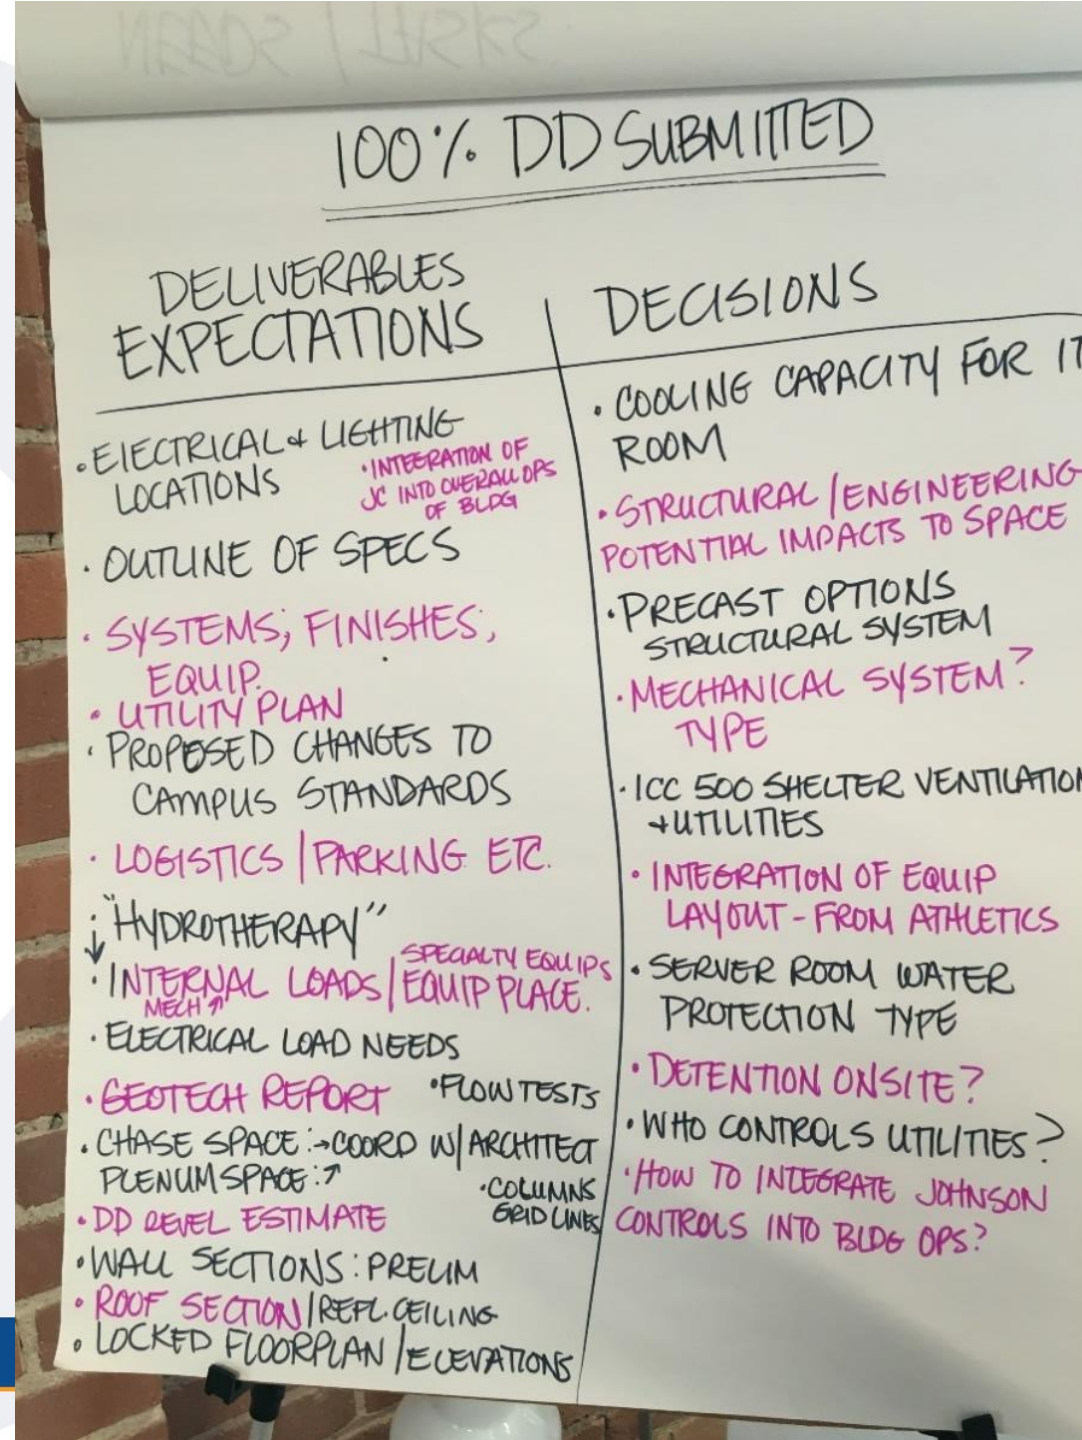 100% DD SUBMITTED
DELIVERABLES
EXPECTATIONS
• ElECTRICAL & LIGHTING
LOCATIONS
• INTEGRATION OF
JC INTO OVERALL OPS
OF BLDG
• OUTLINE OF SPECS
• SYSTEMS; FINISHES;
EQUIP.
• UTILITY PLAN
• PROPOSED CHANGES TO
CAMPUS STANDARDS
• LOGISTICS / PARKING ETC.
• "HYDROTHERAPY"
↓
• INTERNAL LOADS / EQUIP PLACE.
MECH ↗
SPECIALTY EQUIPS
• ELECTRICAL LOAD NEEDS
• GEOTECH REPORT
• FLOW TESTS
• CHASE SPACE: → COORD W/ ARCHITECT
PLENUM SPACE: ↗
• COLUMNS
GRID LINES
• DD LEVEL ESTIMATE
• WALL SECTIONS: PRELIM
• ROOF SECTION / REFL. CEILING
• LOCKED FLOORPLAN / ELEVATIONS
DECISIONS
• COOLING CAPACITY FOR IT
ROOM
• STRUCTURAL / ENGINEERING
POTENTIAL IMPACTS TO SPACE
• PRECAST OPTIONS
STRUCTURAL SYSTEM
• MECHANICAL SYSTEM?
TYPE
• ICC 500 SHELTER VENTILATION
+ UTILITIES
• INTEGRATION OF EQUIP
LAYOUT - FROM ATHLETICS
• SERVER ROOM WATER
PROTECTION TYPE
• DETENTION ONSITE?
• WHO CONTROLS UTILITIES?
• HOW TO INTEGRATE JOHNSON
CONTROLS INTO BLDG OPS?